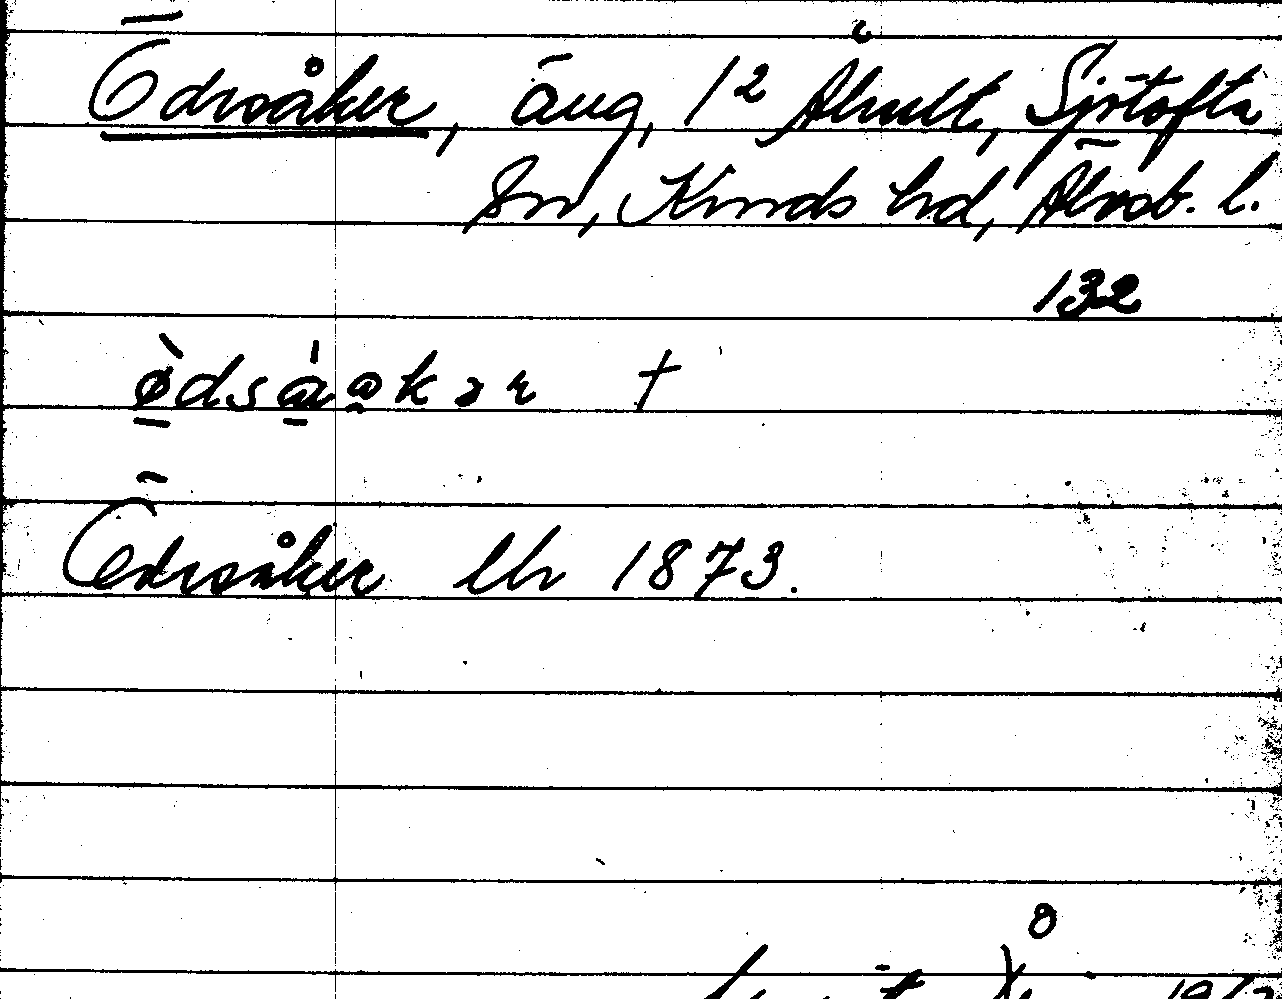 Ödrsåker, äng, 1² Åhult, Sjötofta
sn, Kinds hd, Älvsb. l.
132
ø̀dsɑ̀ɑkər †
Ödrsåker Lh 1873.